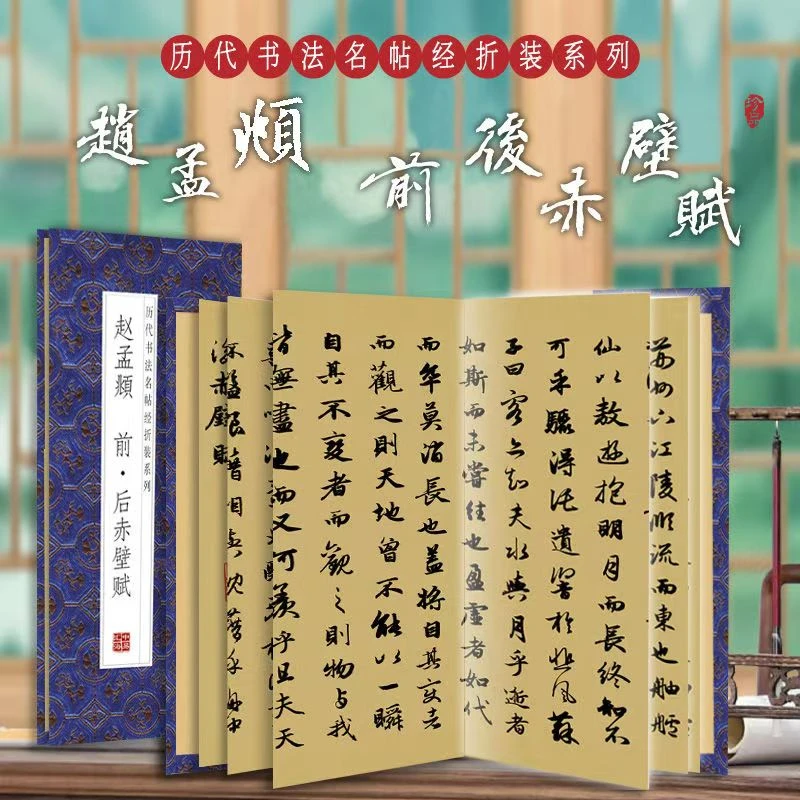 历代书法名帖经折装系列
趙孟頫 前後赤壁賦
珍品
历代书法名帖经折装系列
赵孟頫 前·后赤壁赋
荊州下江陵順流而東也舳艫
仙以敖遊抱明月而長終知不
可乎驟得託遺響於悲風蘇
子曰客亦知夫水與月乎逝者
如斯而未嘗往也盈虛者如代
而卒莫消長也蓋將自其變者
而觀之則天地曾不能以一瞬
自其不變者而觀之則物与我
皆無盡也而又可羨乎且夫天